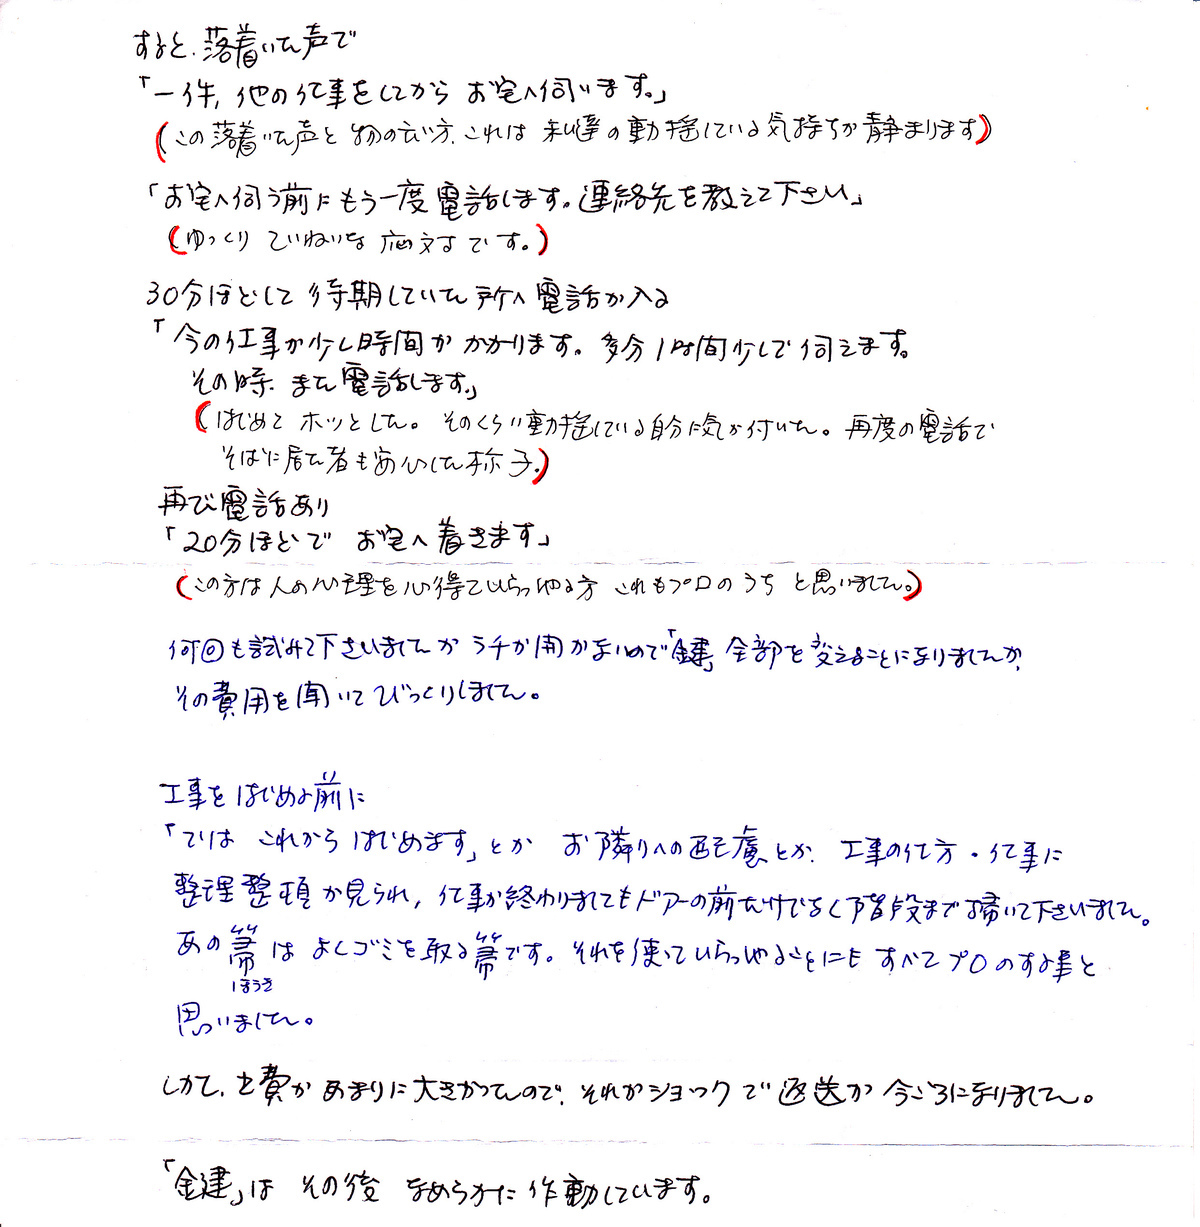 すると、落着いた声で
「一件、他の仕事をしてから お宅へ伺います。」
(この落着いた声と物の云い方、これは 私達の動揺している気持ちが静まります)
「お宅へ伺う前にもう一度電話します。連絡先を教えて下さい」
(ゆっくり ていねいな 応対です。)
30分ほどして 待期していた所へ 電話が入る
「今の仕事が少し時間が かかります。多分1時間少しで伺えます。
その時、また電話します。」
(はじめて ホッとした。そのくらい動揺している自分に気が付いた。再度の電話で
そばに居た者も安心した様子。)
再び電話あり
「20分ほどで お宅へ着きます」
(この方は人の心理を心得ていらっしゃる方 これもプロのうち と思いました。)
何回も試みて下さいましたが ラチが開かないので「鍵」全部を変えることになりましたが、
その費用を聞いてびっくりしました。
工事をはじめる前に
「では これから はじめます」とか お隣りへの配慮とか、工事の仕方・仕事に
整理整頓が見られ、仕事が終わりましてもドアーの前だけでなく階段まで掃いて下さいました。
あの箒は よくゴミを取る箒です。それを使っていらっしゃることにも すべてプロのする事と
ほうき
思いました。
しかし、出費が あまりに大きかったので、それがショックで返送が 今ごろになりました。
「鍵」は その後 なめらかに作動しています。